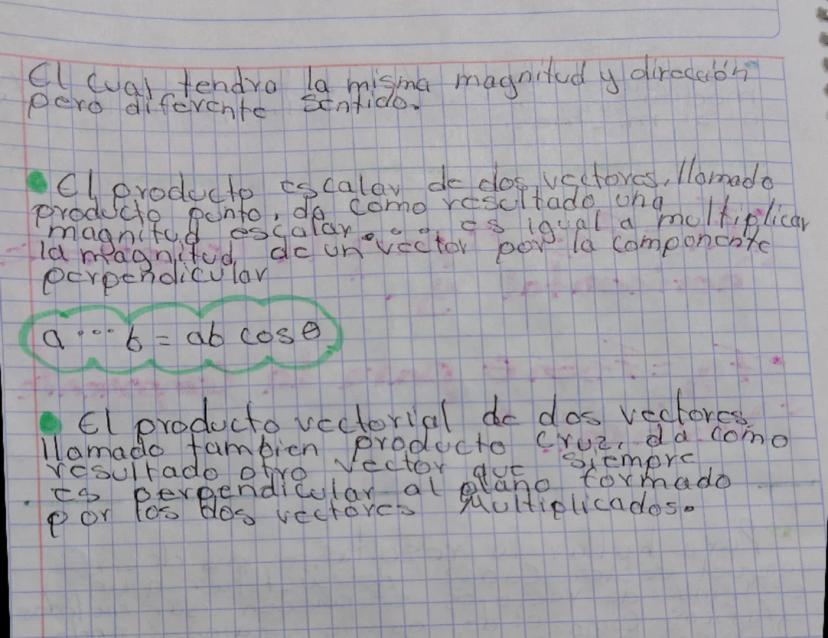 El cual tendra la misma magnitud y dirección
pero diferente sentido.
El producto escalar de dos vectores, llamado
producto punto, da como resultado una
magnitud escalar . . . es igual a multiplicar
la magnitud de un vector por la componente
perpendicular
a ... b = ab cos θ
El producto vectorial de dos vectores
llamado tambien producto cruz, da como
resultado otro vector que siempre
es perpendicular al plano formado
por los dos vectores Multiplicados.